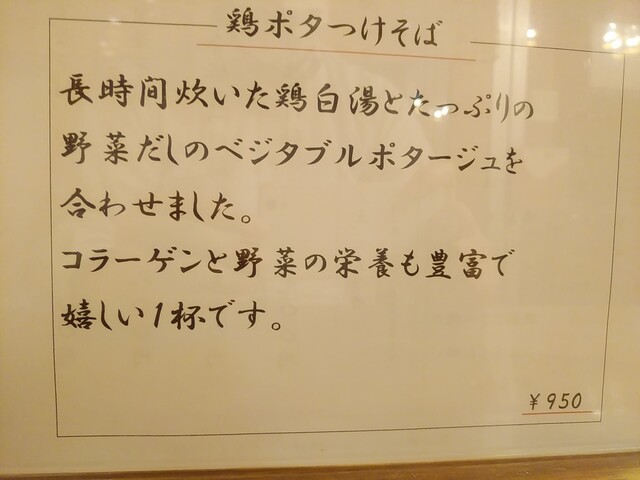 鶏ポタつけそば
長時間炊いた鶏白湯とたっぷりの
野菜だしのベジタブルポタージュを
合わせました。
コラーゲンと野菜の栄養も豊富で
嬉しい1杯です。
¥950